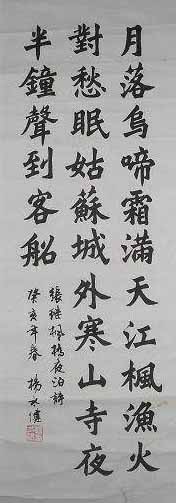 月落烏啼霜滿天江楓漁火
對愁眠姑蘇城外寒山寺夜
半鐘聲到客船
張繼楓橋夜泊詩
癸亥年春 楊